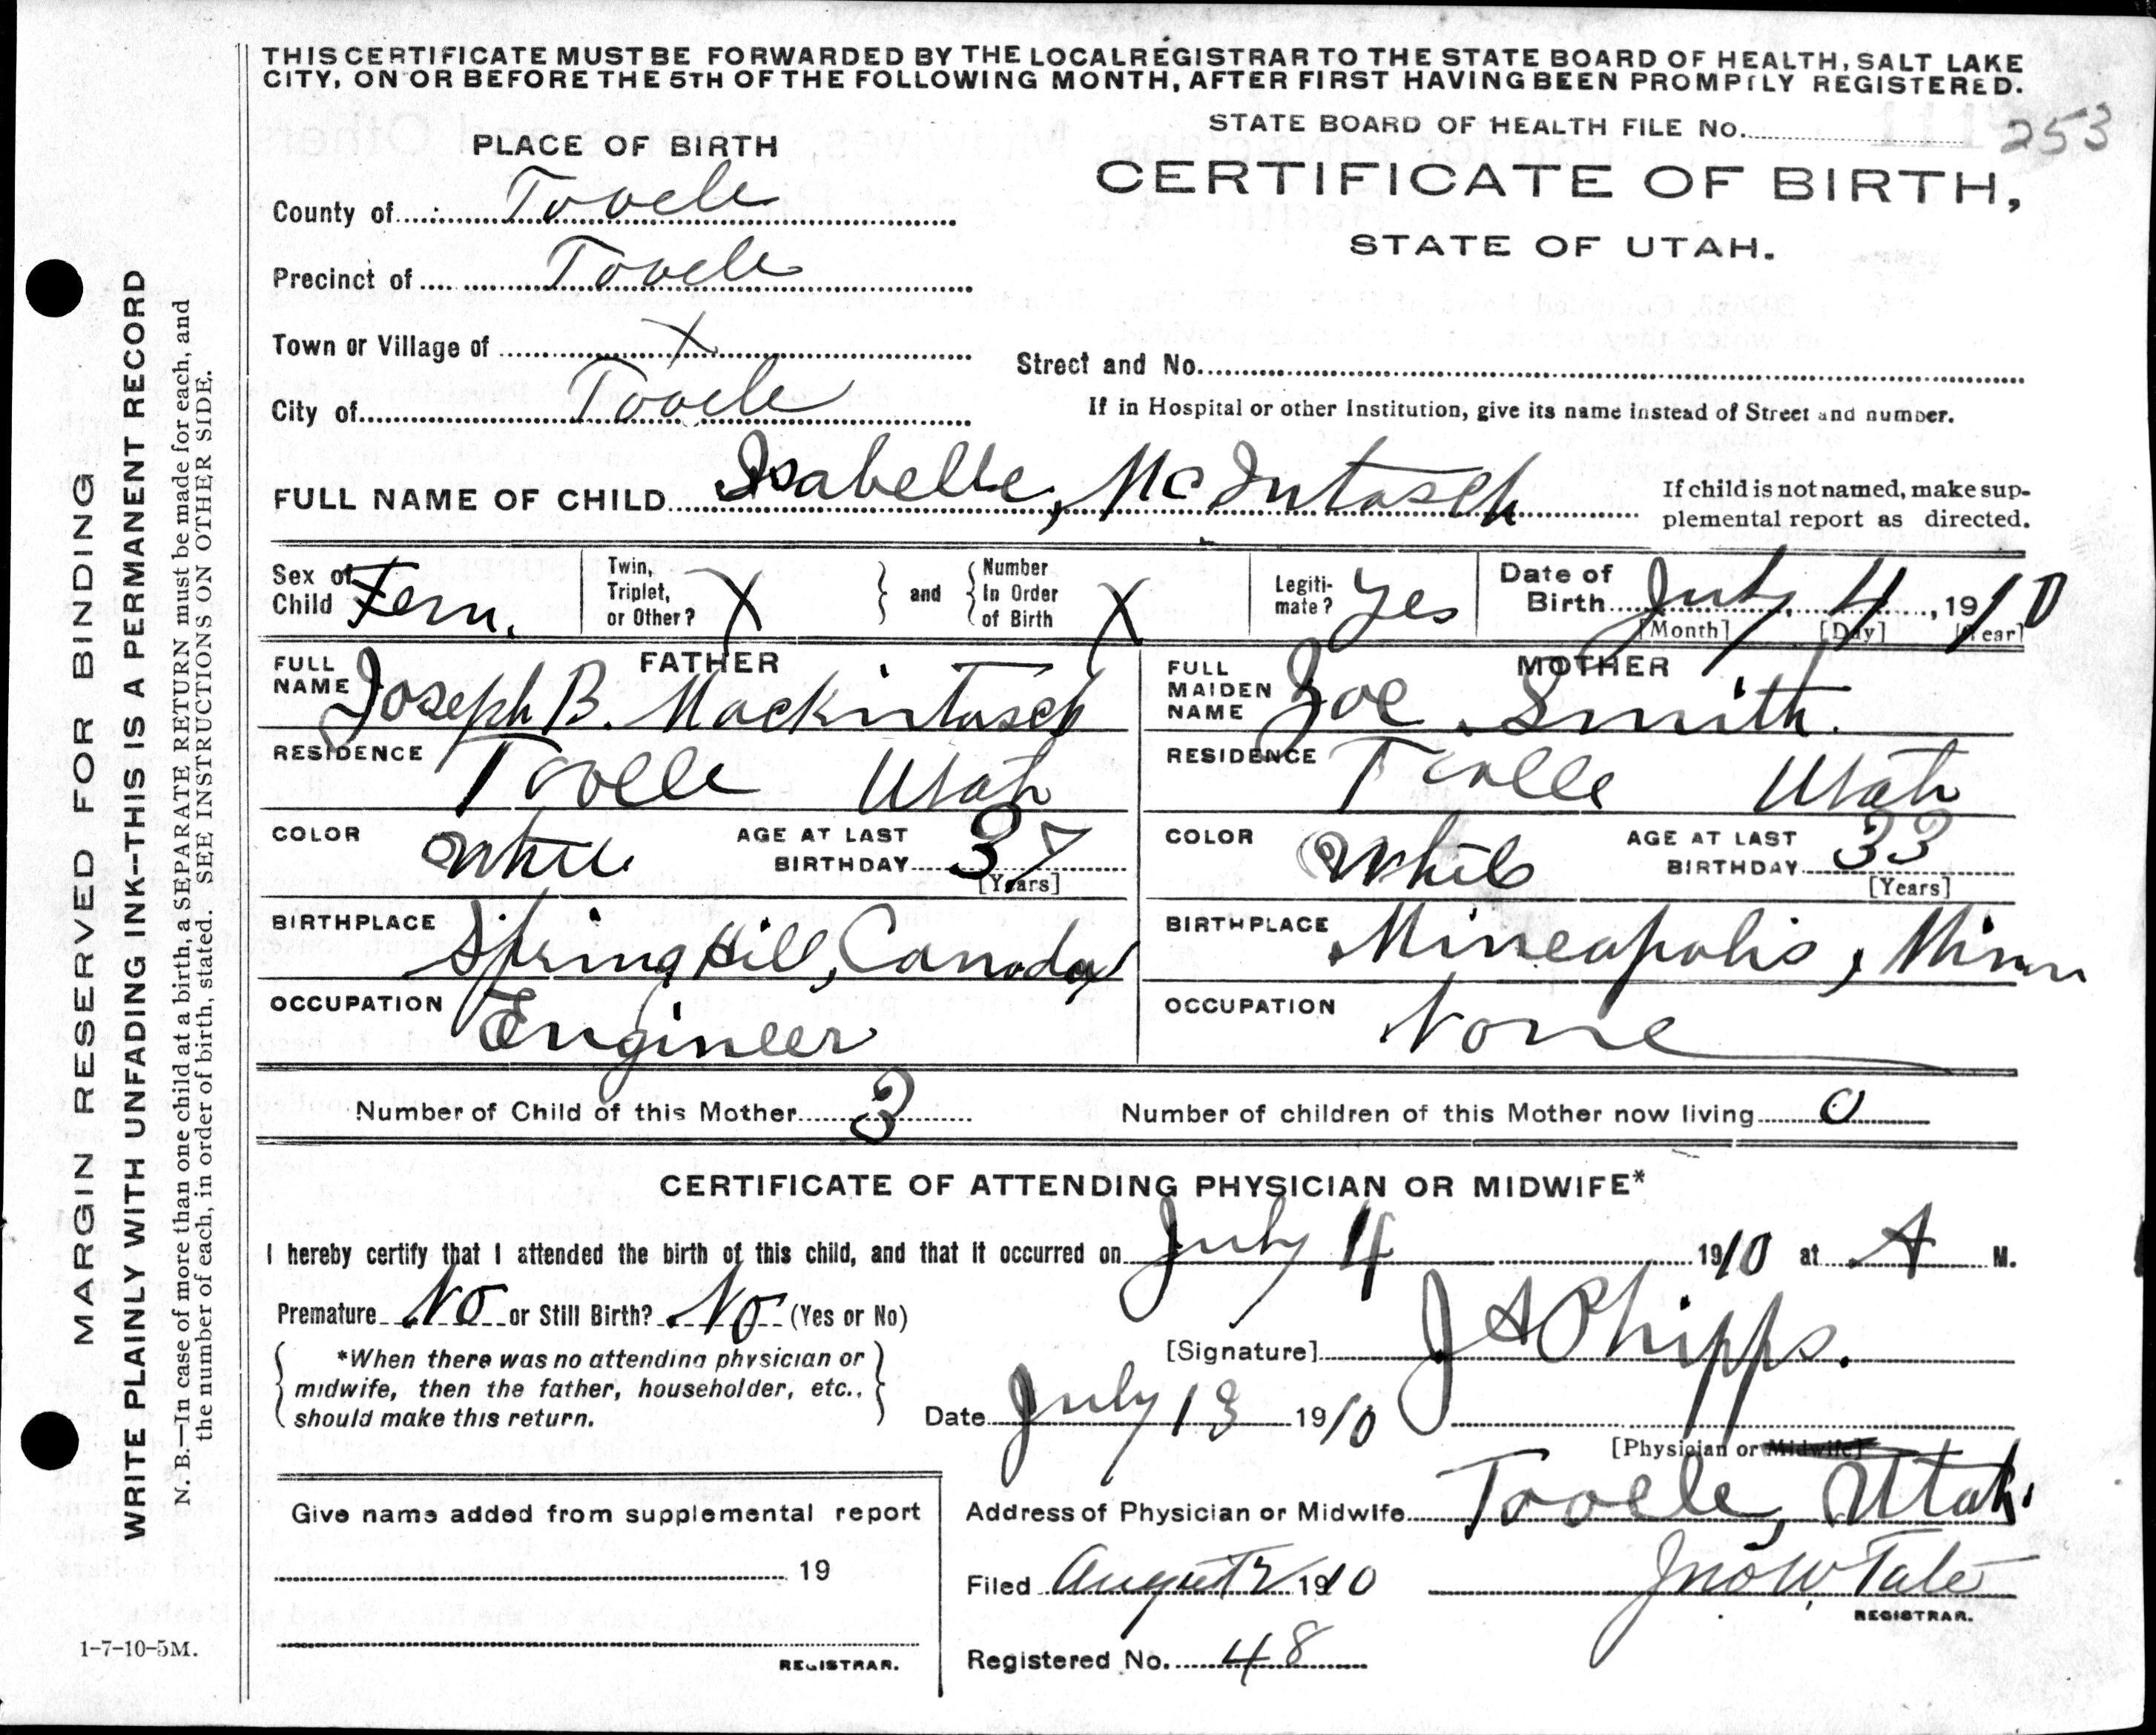 THIS CERTIFICATE MUST BE FORWARDED BY THE LOCAL REGISTRAR TO THE STATE BOARD OF HEALTH, SALT LAKE
CITY, ON OR BEFORE THE 5TH OF THE FOLLOWING MONTH, AFTER FIRST HAVING BEEN PROMPTLY REGISTERED.
STATE BOARD OF HEALTH FILE No. 253
PLACE OF BIRTH
CERTIFICATE OF BIRTH,
STATE OF UTAH.
County of Tooele
Precinct of Tooele
Town or Village of X
Street and No.
City of Tooele
If in Hospital or other Institution, give its name instead of Street and number.
FULL NAME OF CHILD Isabelle, McIntosch
If child is not named, make sup-
plemental report as directed.
Sex of Child Fem.
Twin, Triplet, or Other? X
and
Number In Order of Birth X
Legiti-mate? Yes
Date of Birth July 4, 1910
[Month] [Day] [Year]
FATHER
FULL NAME Joseph B. Mackintosch
RESIDENCE Tooele Utah
COLOR White AGE AT LAST BIRTHDAY 37
[Years]
BIRTHPLACE Spring Hill, Canada
OCCUPATION Engineer
MOTHER
FULL MAIDEN NAME Zoe Smith.
RESIDENCE Tooele Utah
COLOR White AGE AT LAST BIRTHDAY 33
[Years]
BIRTHPLACE Mineapolis, Minn
OCCUPATION None
Number of Child of this Mother 3
Number of children of this Mother now living 0
CERTIFICATE OF ATTENDING PHYSICIAN OR MIDWIFE*
I hereby certify that I attended the birth of this child, and that it occurred on July 4 1910 at A M.
Premature No or Still Birth? No (Yes or No)
*When there was no attending physician or
midwife, then the father, householder, etc.,
should make this return.
[Signature] J A Phipps.
Date July 13 1910
[Physician or Midwife]
Address of Physician or Midwife Tooele, Utah.
Give name added from supplemental report
19
REGISTRAR.
Filed August 2 1910 Jno W Tate
REGISTRAR.
Registered No. 48
MARGIN RESERVED FOR BINDING
WRITE PLAINLY WITH UNFADING INK--THIS IS A PERMANENT RECORD
N. B.—In case of more than one child at a birth, a SEPARATE RETURN must be made for each, and
the number of each, in order of birth, stated. SEE INSTRUCTIONS ON OTHER SIDE.
1-7-10-5M.